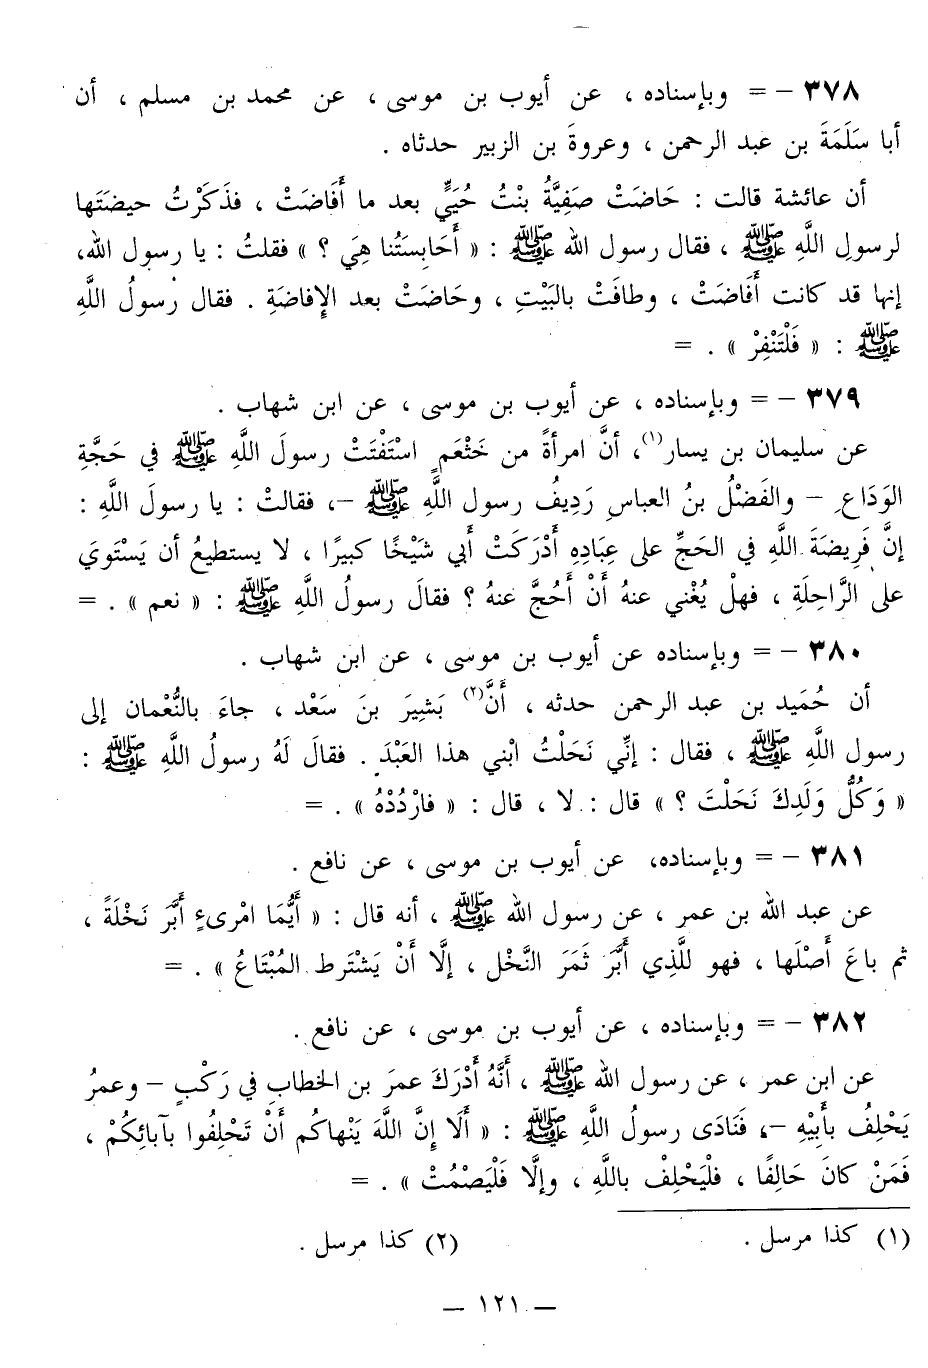 ٣٧٨ - = وبإسناده ، عن أيوب بن موسى ، عن محمد بن مسلم ، أن
أبا سَلَمَةَ بن عبد الرحمن ، وعروةَ بن الزبير حدثاه .
أن عائشة قالت : حَاضَتْ صَفِيَّةُ بِنْتُ حُيَيٍّ بعد ما أَفَاضَتْ ، فذَكَرْتُ حيضَتَها
لرسولِ اللَّهِ ﷺ ، فقال رسول الله ﷺ : « أَحَابِسَتُنا هِيَ ؟ » فقلتُ : يا رسول الله،
إنها قد كانت أَفَاضَتْ ، وطافَتْ بالبَيْتِ ، وحَاضَتْ بعد الإِفاضَةِ . فقال رسولُ اللَّهِ
ﷺ : « فَلْتَنْفِرْ » . =
٣٧٩ - = وبإسناده ، عن أيوب بن موسى ، عن ابن شهاب .
عن سليمان بن يسار(١)، أنَّ امرأةً من خَثْعَمٍ اسْتَفْتَتْ رسولَ اللَّهِ ﷺ في حَجَّةِ
الوَدَاعِ - والفَضْلُ بنُ العباسِ رَدِيفُ رسول اللَّهِ ﷺ -، فقالتْ : يا رسولَ اللَّهِ :
إنَّ فَرِيضَةَ اللَّهِ في الحَجِّ على عِبَادِهِ أَدْرَكَتْ أَبي شَيْخًا كبيرًا ، لا يستطيعُ أن يَسْتَويَ
على الرَّاحِلَةِ ، فهلْ يُغْني عنهُ أَنْ أَحُجَّ عنهُ ؟ فقالَ رسولُ اللَّهِ ﷺ : « نعم » . =
٣٨٠ - = وبإسناده عن أيوب بن موسى ، عن ابن شهاب .
أن حُمَيد بن عبد الرحمن حدثه ، أَنَّ(٢) بَشِيرَ بنَ سَعْد ، جاءَ بالنُّعْمان إلى
رسول اللَّهِ ﷺ ، فقال : إنِّي نَحَلْتُ ابْني هذا العَبْدَ . فقالَ لَهُ رسولُ اللَّهِ ﷺ :
« وَكُلُّ وَلَدِكَ نَحَلْتَ ؟ » قال : لا ، قال : « فارْدُدْهُ » . =
٣٨١ - = وبإسناده، عن أيوب بن موسى ، عن نافع .
عن عبد الله بن عمر ، عن رسول الله ﷺ ، أنه قال : « أَيُّمَا امْرىءٍ أَبَّرَ نَخْلَةً ،
ثم باعَ أَصْلَها ، فهو للَّذِي أَبَّرَ ثَمَرَ النَّخْل ، إلَّا أَنْ يَشْتَرط المُبْتَاعُ » . =
٣٨٢ - = وبإسناده ، عن أيوب بن موسى ، عن نافع .
عن ابن عمر ، عن رسول الله ﷺ ، أَنَّهُ أَدْرَكَ عمرَ بن الخطابِ في رَكْبٍ - وعمرُ
يَحْلِفُ بأَبِيْهِ -، فَنَادَى رسولُ اللَّهِ ﷺ : « أَلَا إنَّ اللَّهَ يَنْهاكُم أَنْ تَحْلِفُوا بآبائِكُمْ ،
فَمَنْ كانَ حَالِفًا ، فلْيَحْلِفْ باللَّهِ ، وإلَّا فَلْيَصْمُتْ » . =
(١) كذا مرسل . (٢) كذا مرسل .
- ١٢١ -